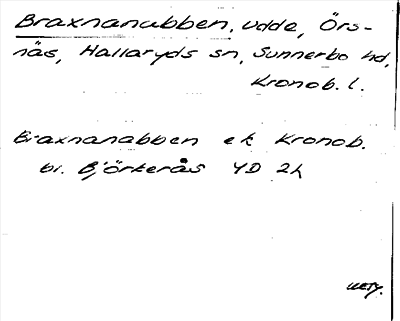 Braxnanabben, udde, Örs-
näs, Hallaryds sn, Sunnerbo hd,
Kronob. l.
Braxnanabben ek Kronob.
bl. Björkerås 4D 2h